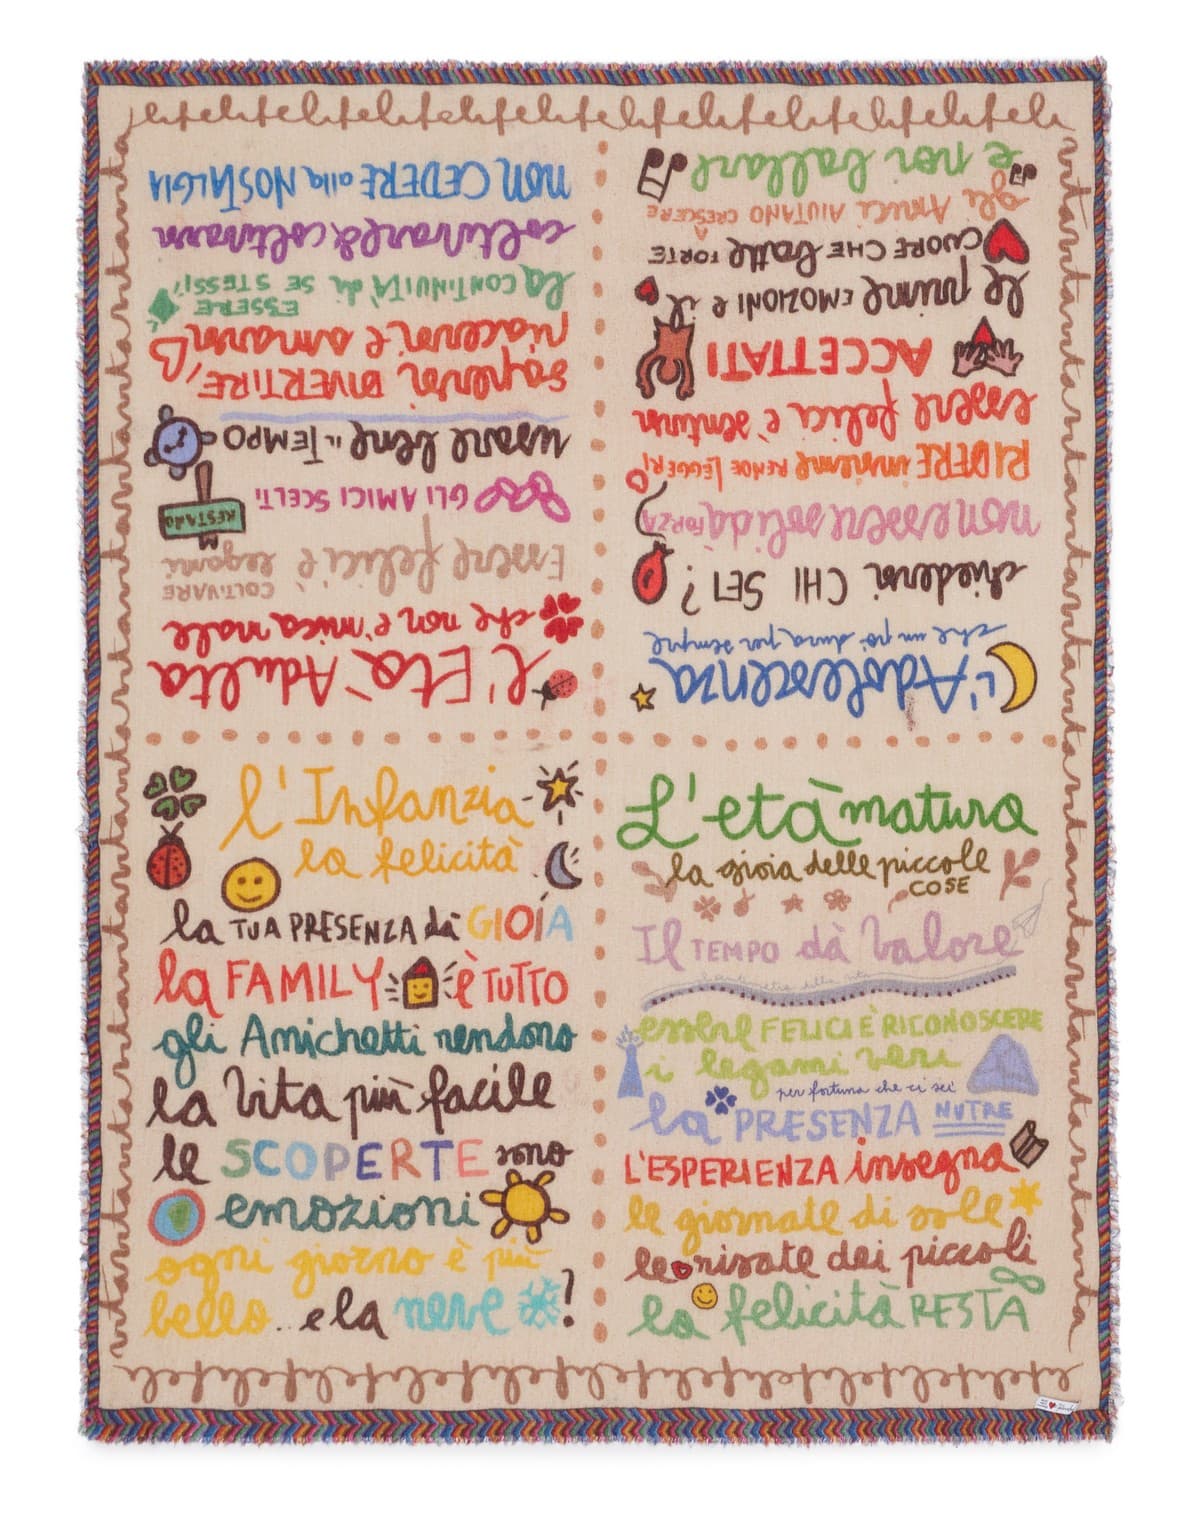 l'Infanzia
la felicità
la TUA PRESENZA dà GIOIA
la FAMILY è TUTTO
gli Amichetti rendono
la Vita più facile
le SCOPERTE sono
emozioni
ogni giorno è più
bello.. e la neve !
L'età matura
la gioia delle piccole
COSE
Il TEMPO dà Valore
essere FELICI È RICONOSCERE
i legami veri
per fortuna che ci sei
la PRESENZA NUTRE
L'ESPERIENZA insegna
le giornate di sole
le risate dei piccoli
la felicità RESTA
L'Adolescenza
che un pò dura per sempre
chiedersi CHI SEI?
non essere soli dà FORZA
RIDERE insieme RENDE LEGGERI
essere felici è sentirsi
ACCETTATI
le prime EMOZIONI e il
CUORE CHE batte FORTE
gli Amici AIUTANO A CRESCERE
e poi ballare
l'Età Adulta
che non è mica male
Essere felici è
COLTIVARE
legami
GLI AMICI SCELTI
RESTANO
usare bene il TEMPO
sapersi DIVERTIRE,
piacersi e amarsi
la CONTINUITÀ di
ESSERE
SE STESSI
coltivare & coltivarsi
non CEDERE alla NOSTALGIA